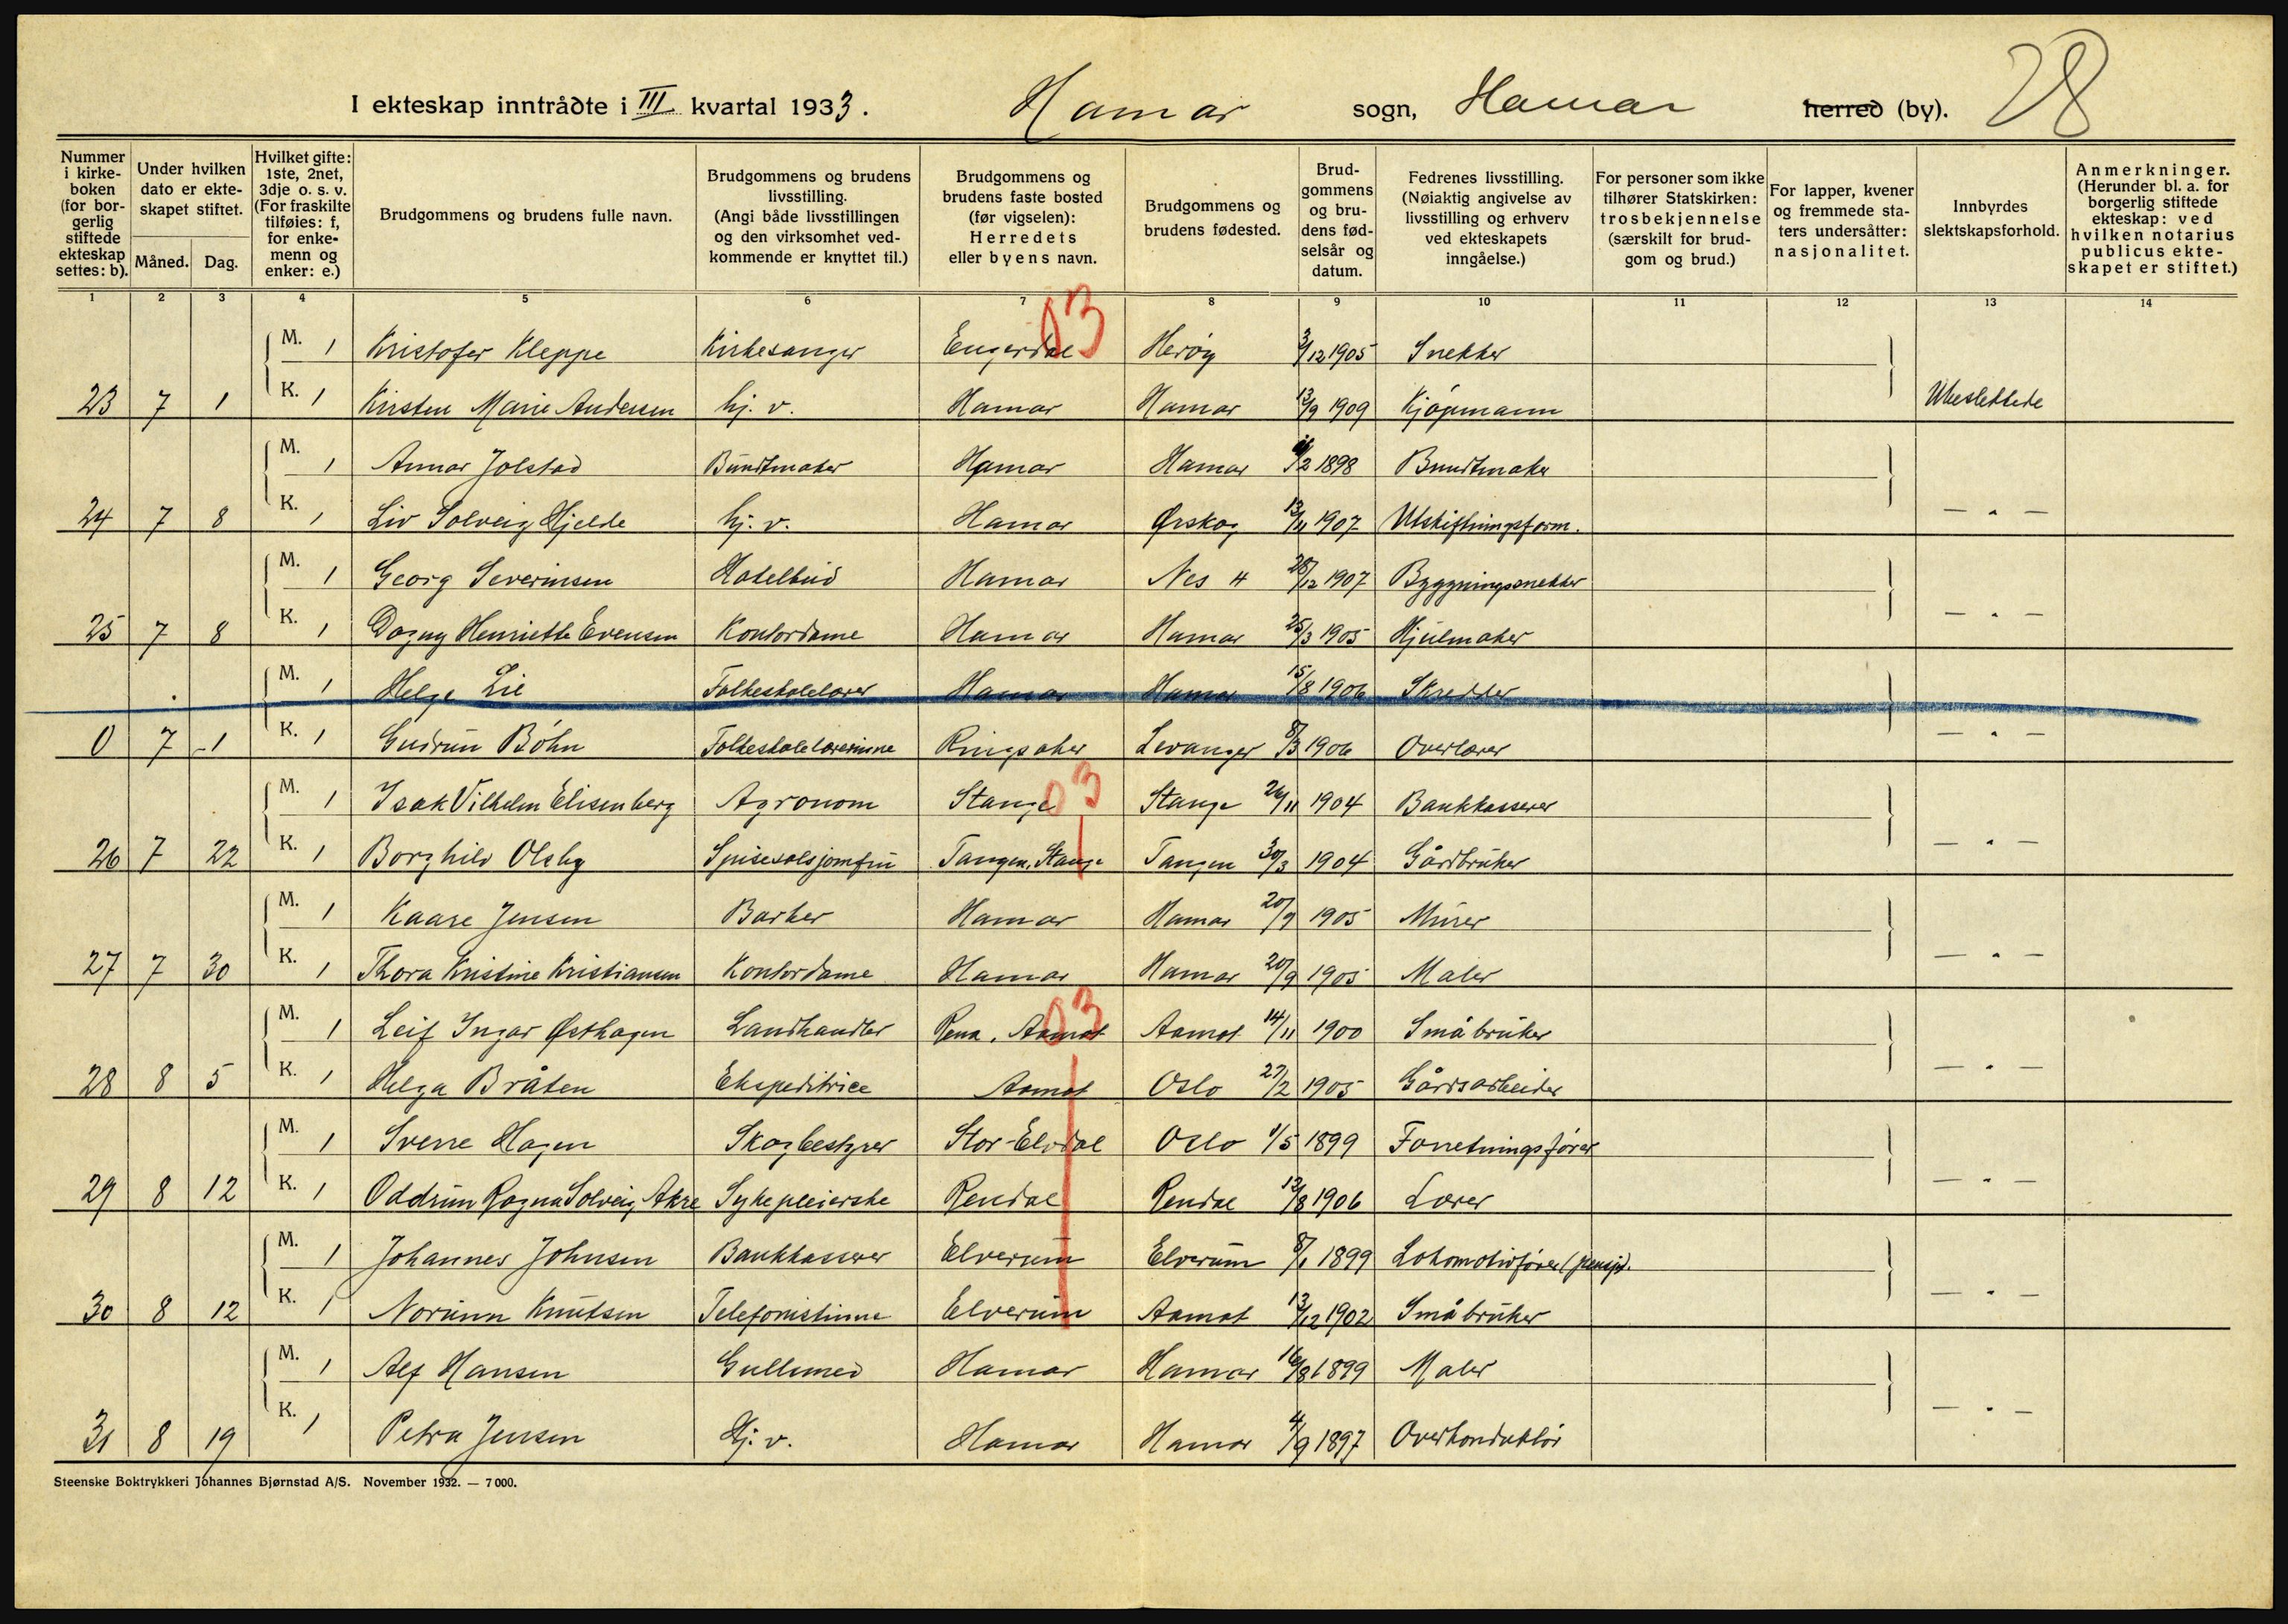 28
I ekteskap inntrådte i III kvartal 1933. Hamar sogn, Hamar herred (by).
Nummer i kirkeboken (for borgerlig stiftede ekteskap settes: b).
Under hvilken dato er ekteskapet stiftet.
Måned. Dag.
Hvilket gifte: 1ste, 2net, 3dje o. s. v. (For fraskilte tilføies: f, for enkemenn og enker: e.)
Brudgommens og brudens fulle navn.
Brudgommens og brudens livsstilling. (Angi både livsstillingen og den virksomhet vedkommende er knyttet til.)
Brudgommens og brudens faste bosted (før vigselen): Herredets eller byens navn.
Brudgommens og brudens fødested.
Brudgommens og brudens fødselsår og datum.
Fedrenes livsstilling. (Nøiaktig angivelse av livsstilling og erhverv ved ekteskapets inngåelse.)
For personer som ikke tilhører Statskirken: trosbekjennelse (særskilt for brudgom og brud.)
For lapper, kvener og fremmede staters undersåtter: nasjonalitet.
Innbyrdes slektskapsforhold.
Anmerkninger. (Herunder bl. a. for borgerlig stiftede ekteskap: ved hvilken notarius publicus ekteskapet er stiftet.)
1 2 3 4 5 6 7 8 9 10 11 12 13 14
03
M. 1 Kristofer Kleppe Kirkesanger Engerdal Herøy 3/12 1905 Snekker
23 7 1 K. 1 Kirsten Marie Andersen hj. v. Hamar Hamar 13/9 1909 Kjøpmann Ubeslektede
M. 1 Annar Jolstad Buntmaker Hamar Hamar /2 1898 Buntmaker
24 7 8 K. 1 Liv Solveig Hjelde hj. v. Hamar Ørskog 13/11 1907 Utskiftningsform. — " —
M. 1 Georg Severinsen Hotelbud Hamar Nes H 28/12 1907 Bygningssnekker
25 7 8 K. 1 Dagny Henriette Evensen Kontordame Hamar Hamar 25/3 1905 Hjulmaker — " —
M. 1 Helge Lie Folkeskolelærer Hamar Hamar 15/8 1906 Skredder
0 7 1 K. 1 Gudrun Bøhn Folkeskolelærerinne Ringsaker Levanger 8/3 1906 Overlærer — " —
03
M. 1 Isak Vilhelm Elisenberg Agronom Stange Stange 26/11 1904 Bankkasserer
26 7 22 K. 1 Borghild Olsby Spisesalsjomfru Tangen, Stange Tangen 30/3 1904 Gårdbruker — " —
M. 1 Kaare Jensen Barber Hamar Hamar 20/9 1905 Murer
27 7 30 K. 1 Thora Kristine Kristiansen Kontordame Hamar Hamar 20/9 1905 Maler — " —
03
M. 1 Leif Ingar Østhagen Landhandler Rena, Aamot Aamot 14/11 1900 Småbruker
28 8 5 K. 1 Helga Bråten Ekspeditrice Aamot Oslo 27/2 1905 Gårdsarbeider — " —
M. 1 Sverre Hagen Skogbestyrer Stor-Elvdal Oslo 1/5 1899 Forretningsfører
29 8 12 K. 1 Oddrun Ragna Solveig Akre Sykepleierske Rendal Rendal 12/8 1906 Lærer — " —
M. 1 Johannes Johnsen Bankkasserer Elverum Elverum 8/1 1899 Lokomotivfører (pensj.
30 8 12 K. 1 Norunn Knutsen Telefonistinne Elverum Aamot 13/12 1902 Småbruker — " —
M. 1 Alf Hansen Gullsmed Hamar Hamar 16/8 1899 Maler
31 8 19 K. 1 Petra Jensen Hj. v. Hamar Hamar 4/9 1897 Overkonduktør — " —
Steenske Boktrykkeri Johannes Bjørnstad A/S. November 1932. — 7 000.